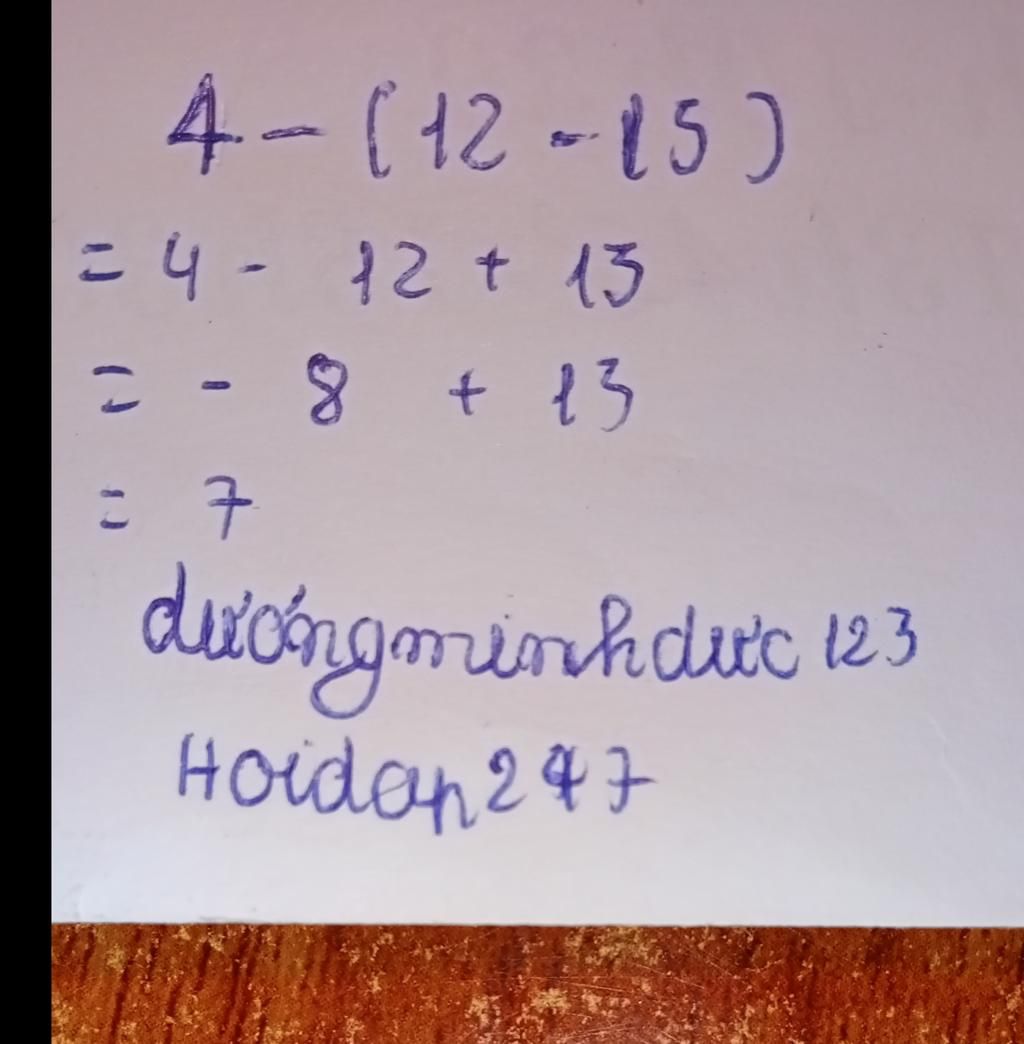 4 - (12 - 15)
= 4 - 12 + 15
= - 8 + 15
= 7
dươngminhdưc123
Hoidap247